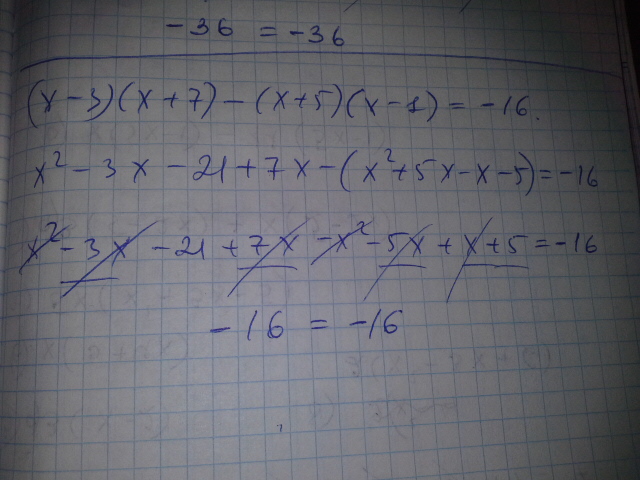 -36 = -36
(x-3)(x+7)-(x+5)(x-1)=-16.
x²-3x-21+7x-(x²+5x-x-5)=-16
x²-3x-21+7x-x²-5x+x+5=-16
-16 = -16